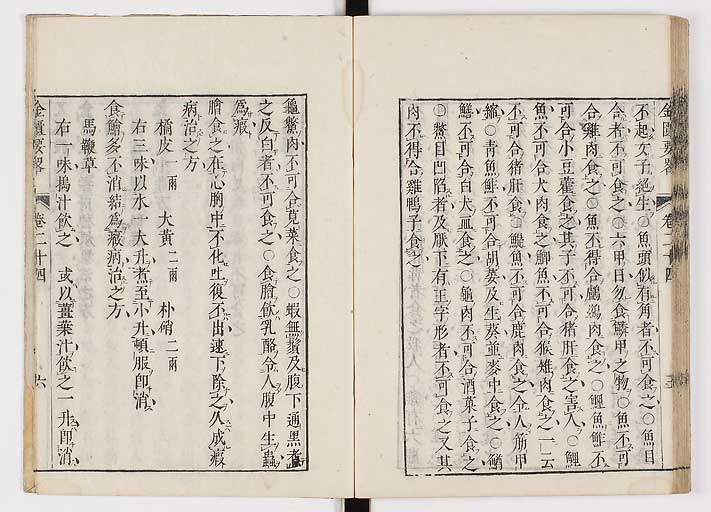 金匱要畧 卷二十四
不起女子絕生〇魚頭似有角者不可食之〇魚目
合者不可食之〇六甲日勿食鱗甲之物〇魚不可
合雞肉食之〇魚不得合鸕鷀肉食之〇鯉魚鮓不
可合小豆藿食之其子不可合猪肝食之害人〇鯉
魚不可合犬肉食之鯽魚不可合猴雉肉食之一云
不可合猪肝食〇鯷魚不可合鹿肉食之令人筋甲
縮〇青魚鮓不可合胡荽及生葵並麥中食之〇鰌
鱓不可合白犬血食之〇龜肉不可合酒菓子食之
〇鱉目凹陷者及厭下有王字形者不可食之又其
肉不得合雞鴨子食之
龜鱉肉不可合莧菜食之〇蝦無鬚及腹下通黑煮
之反白者不可食之〇食膾飲乳酪令人腹中生蟲
爲瘕
膾食之在心胸中不化吐復不出速下除之久成癥
病治之方
橘皮一兩 大黃二兩 朴硝二兩
右三味以水一大升煮至小升頓服卽消
食鱠多不消結爲癥病治之方
馬鞭草
右一味搗汁飲之 或以薑葉汁飲之一升卽消
金匱要畧 卷二十四 六